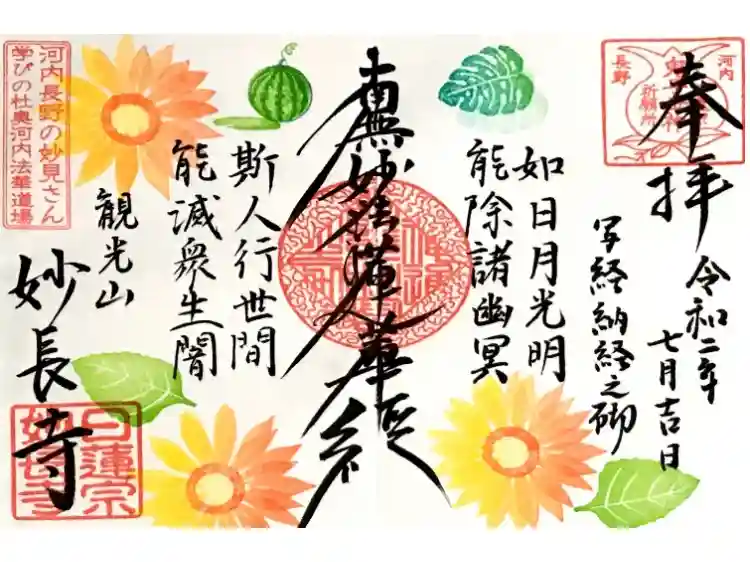 奉拝
令和二年
七月吉日
写経納経之砌
如日月光明
能除諸幽冥
南無妙法蓮華経
斯人行世間
能滅衆生闇
観光山
妙長寺
河内長野の妙見さん
学びの杜奥河内法華道場
河内
長野
祈願所
日蓮宗